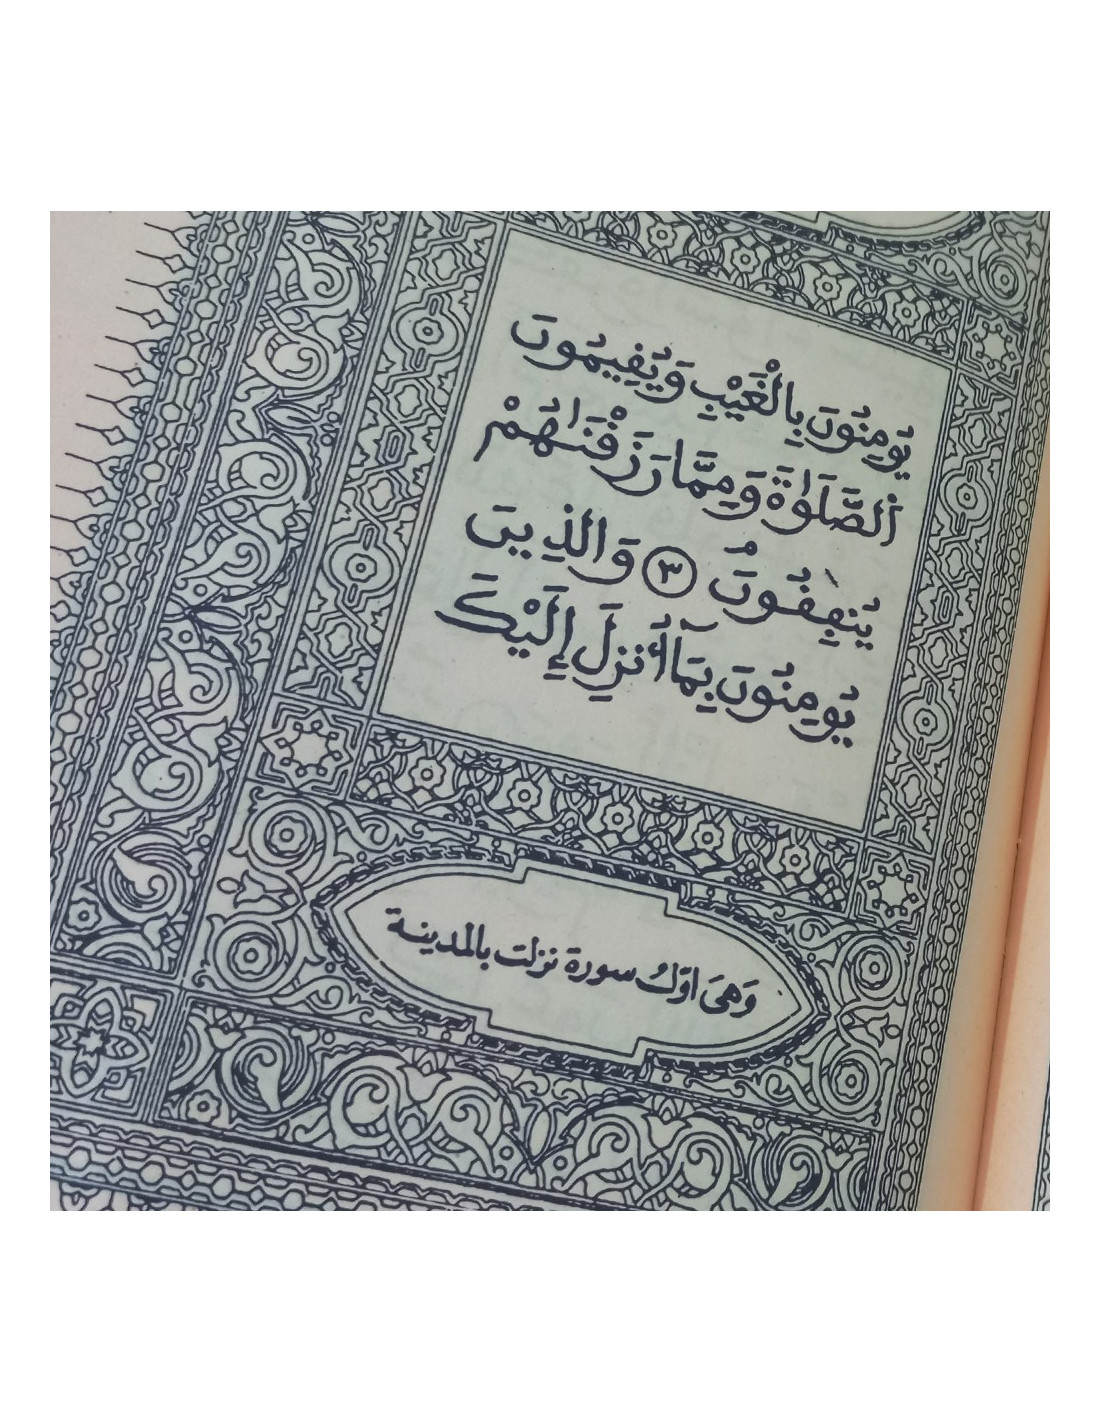 يُومِنُونَ بِالْغَيْبِ وَيُقِيمُونَ
اَ۬لصَّلَوٰةَ وَمِمَّا رَزَقْنَٰهُمْ
يُنفِقُونَ ٣ وَالذِينَ
يُومِنُونَ بِمَآ أُنزِلَ إِلَيْكَ
وَهىَ اوّلُ سورة نزلت بالمدينة